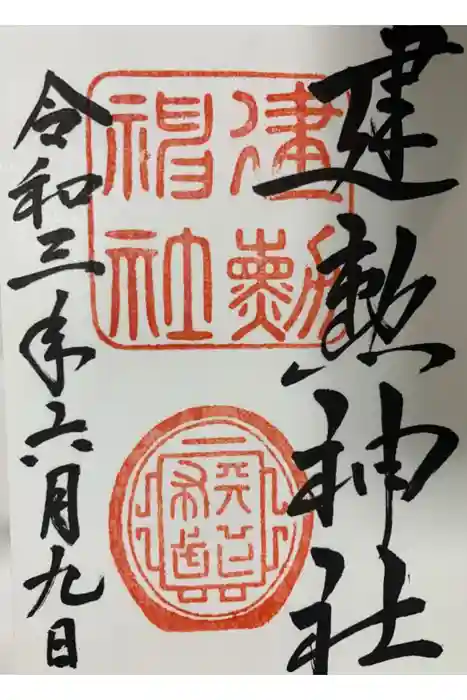 建勲神社
建勲
神社
天下布武
令和三年六月九日